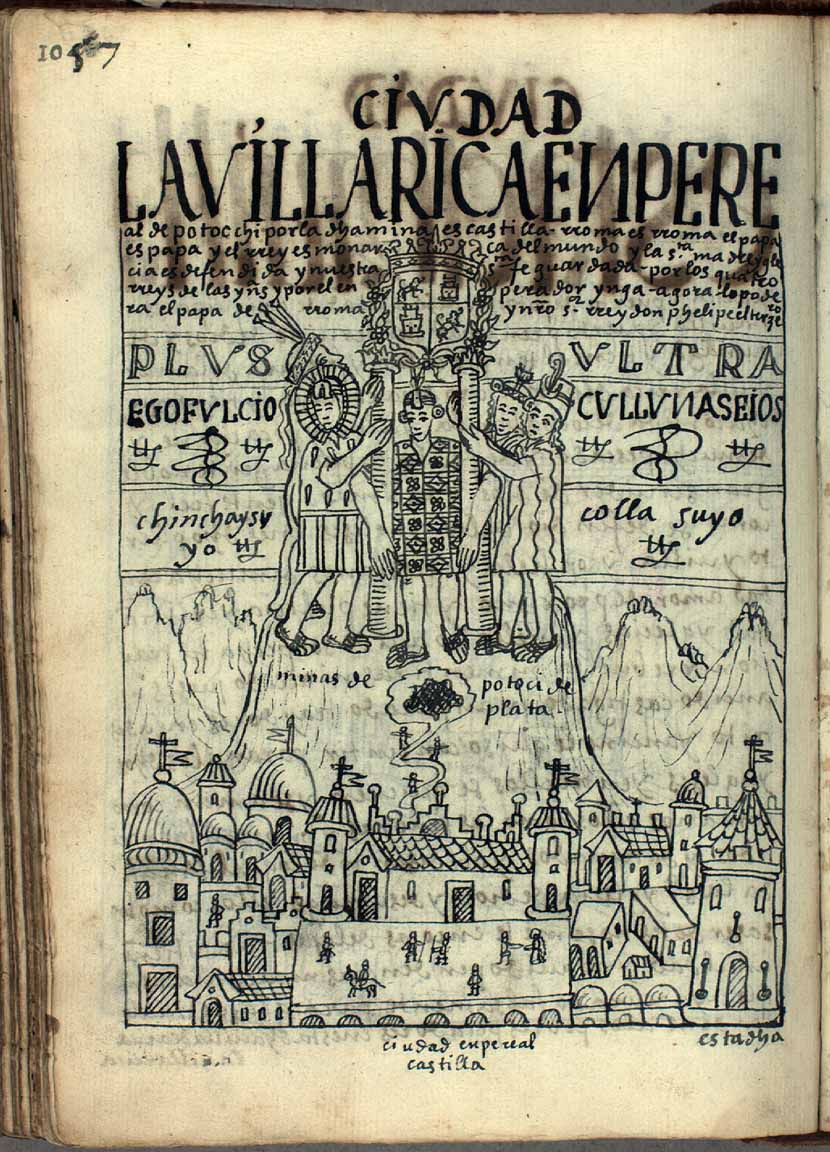 1057
CIVDAD
LAVÍLLARICAENPERE
al de potocchi por la dha mina es castilla rroma es rroma el papa
es papa y el rrey es monarca del mundo y la s.ta madre ygle
cia es defendida y nuestra s.ta fe guardada por los quatro
rreys de las yns y por el enperador ynga agora lo pode
ra el papa de rroma y nro s.r rrey don phelipe el terzero
PLVS VLTRA
EGOFVLCIO CVLLVNASEIOS
chinchaysu
yo
colla suyo
minas de potoci de
plata
ciudad enpereal
castilla
estadha